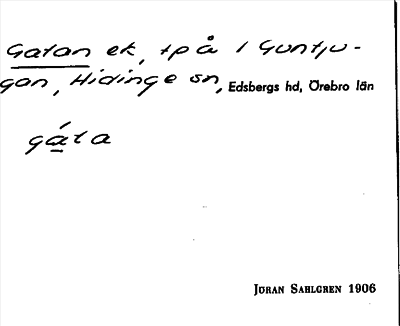 Gatan ek, tp å / Guntju-
gan, Hidinge sn, Edsbergs hd, Örebro län
gáta
JÖRAN SAHLGREN 1906